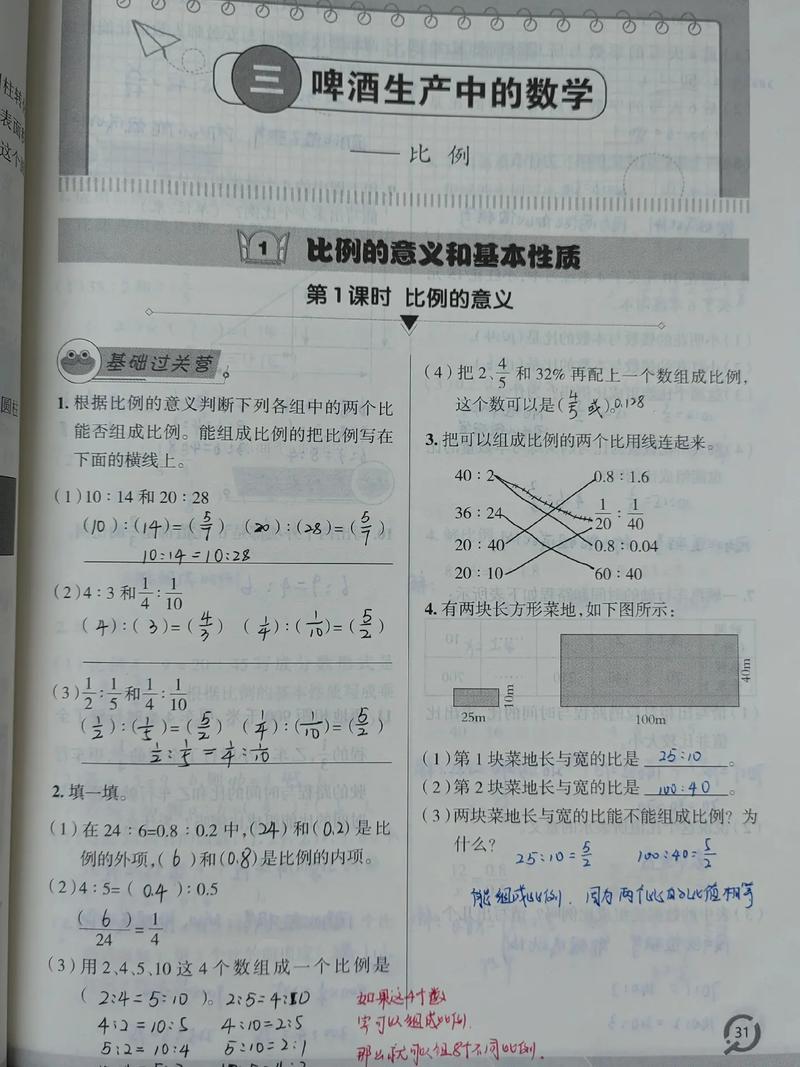 三 啤酒生产中的数学
——比 例
1 比例的意义和基本性质
第1课时 比例的意义
基础过关营
1. 根据比例的意义判断下列各组中的两个比
能否组成比例。能组成比例的把比例写在
下面的横线上。
(1)10∶14和20∶28
(10)∶(14)=(5/7) (20)∶(28)=(5/7)
10:14=10:28
(2)4∶3和1/4∶1/10
(4)∶(3)=(4/3) (1/4)∶(1/10)=(5/2)
(3)1/2∶1/5和1/4∶1/10
(1/2)∶(1/5)=(5/2) (1/4)∶(1/10)=(5/2)
1/2:1/5=1/4:1/10
2. 填一填。
(1)在24∶6=0.8∶0.2中,(24)和(0.2)是比
例的外项,(6)和(0.8)是比例的内项。
(2)4∶5=(0.4)∶0.5
(6)/24=1/4
(3)用2、4、5、10这4个数组成一个比例是
(2:4=5:10)。2:5=4:10
4:2=10:5 4:10=2:5
5:2=10:4 5:10=2:1
如果这4个数
字可以组成比例
那么就可以组8个不同比例.
(4)把2、4/5和32%再配上一个数组成比例,
这个数可以是(4/5或)。0.128
3. 把可以组成比例的两个比用线连起来。
40∶2 0.8∶1.6
36∶24 1/20∶1/40
20∶40 0.8∶0.04
20∶10 60∶40
4. 有两块长方形菜地,如下图所示:
40m
10m
25m 100m
(1)第1块菜地长与宽的比是 25:10 。
(2)第2块菜地长与宽的比是 100:40 。
(3)两块菜地长与宽的比能不能组成比例? 为
什么?
25:10=5/2 100:40=5/2
能组成比例. 因为两个比的比值相等
31